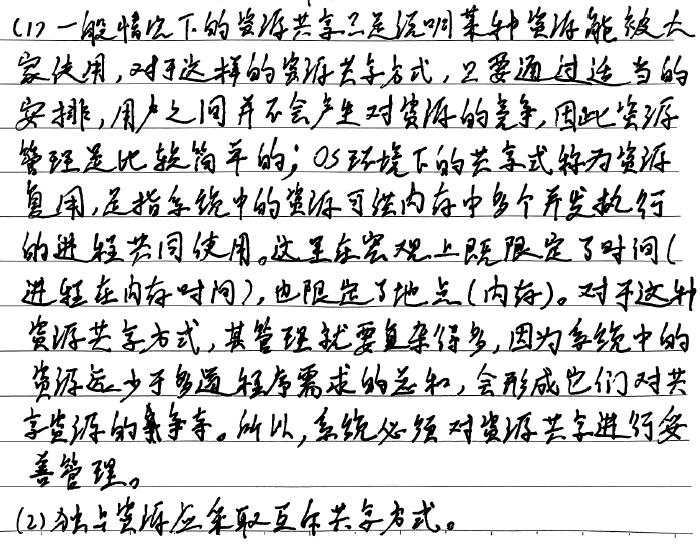 (1) 一般情况下的资源共享只是说明某种资源能被大
家使用,对于这样的资源共享方式,只要通过适当的
安排,用户之间并不会产生对资源的竞争,因此资源
管理是比较简单的;OS环境下的共享式称为资源
复用,是指系统中的资源可供内存中多个并发执行
的进程共同使用。这里在宏观上既限定了时间(
进程在内存时间),也限定了地点(内存)。对于这种
资源共享方式,其管理就要复杂得多,因为系统中的
资源远少于多道程序需求的总和,会形成它们对共
享资源的争夺。所以,系统必须对资源共享进行妥
善管理。
(2)独占资源应采取互斥共享方式。